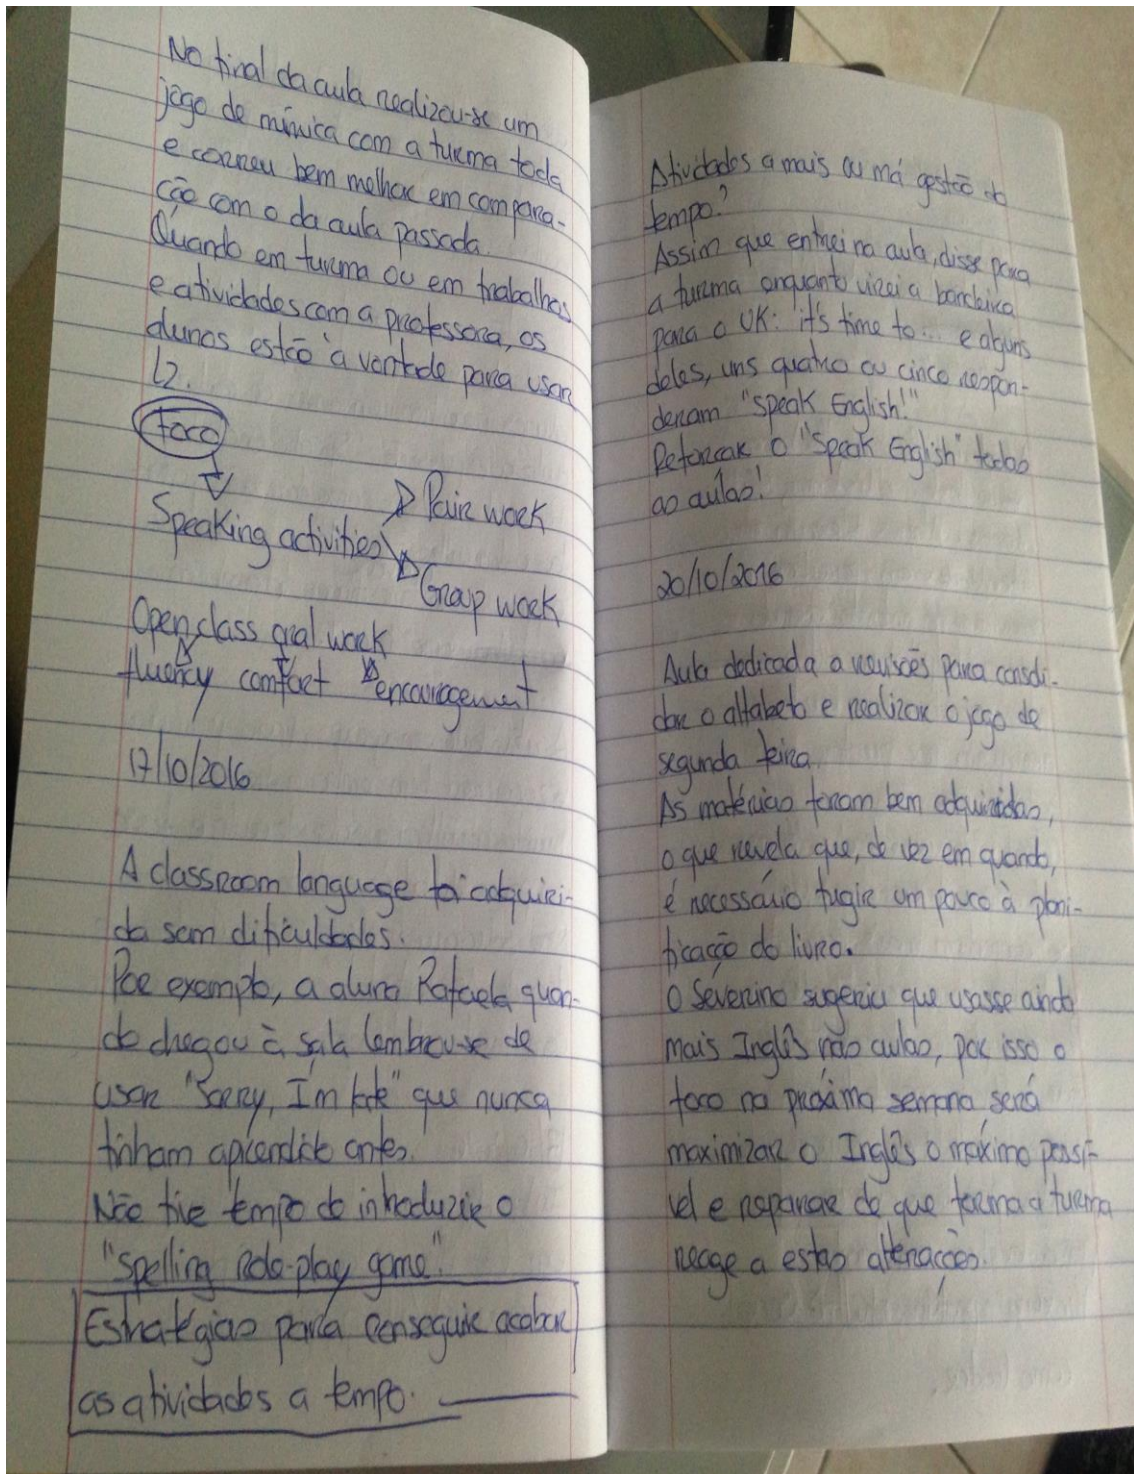 No final da aula realizou-se um
jogo de mímica com a turma toda
e correu bem melhor em compara-
ção com o da aula passada.
Quando em turma ou em trabalhos
e atividades com a professora, os
alunos estão à vontade para usar
L2.
foco
Speaking activities
Pair work
Group work
Open class oral work
fluency comfort encouragement
17/10/2016
A classroom language foi adquiri-
da sem dificuldades.
Por exemplo, a aluna Rafaela quan-
do chegou à sala lembrou-se de
usar "Sorry, I'm late" que nunca
tinham aprendido antes.
Não tive tempo de introduzir o
"Spelling role-play game".
Estratégias para conseguir acabar
as atividades a tempo.
Atividades a mais ou má gestão do
tempo?
Assim que entrei na aula, disse para
a turma enquanto virei a bandeira
para o UK: it's time to... e alguns
deles, uns quatro ou cinco respon-
deram "Speak English!"
Reforçar o "Speak English" todas
as aulas!
20/10/2016
Aula dedicada a revisões para consoli-
dar o alfabeto e realizar o jogo de
segunda feira.
As matérias foram bem adquiridas,
o que revela que, de vez em quando,
é necessário fugir um pouco à plani-
ficação do livro.
O Severino sugeriu que usasse ainda
mais Inglês nas aulas, por isso o
foco na próxima semana será
maximizar o Inglês o máximo possí-
vel e reparar de que forma a turma
reage a estas alterações.